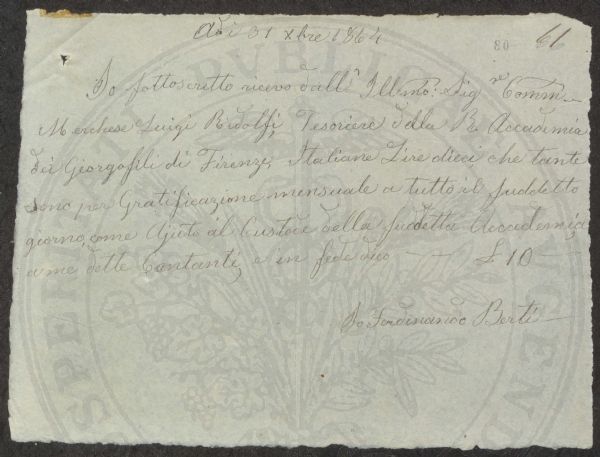 Adi 31 xbre 1864
61
80
Io sottoscritto ricevo dall'Illmo: Sigre Comm
Marchese Luigi Ridolfi, Tesoriere della Re. Accademia
dei Georgofili di Firenze, Italiane Lire dieci che tante
sono per Gratificazione mensuale a tutto il suddetto
giorno, come Ajuto al Custode della suddetta Accademia,
a me dette Contanti, e in fede dico — £ 10 —
Io Ferdinando Berti